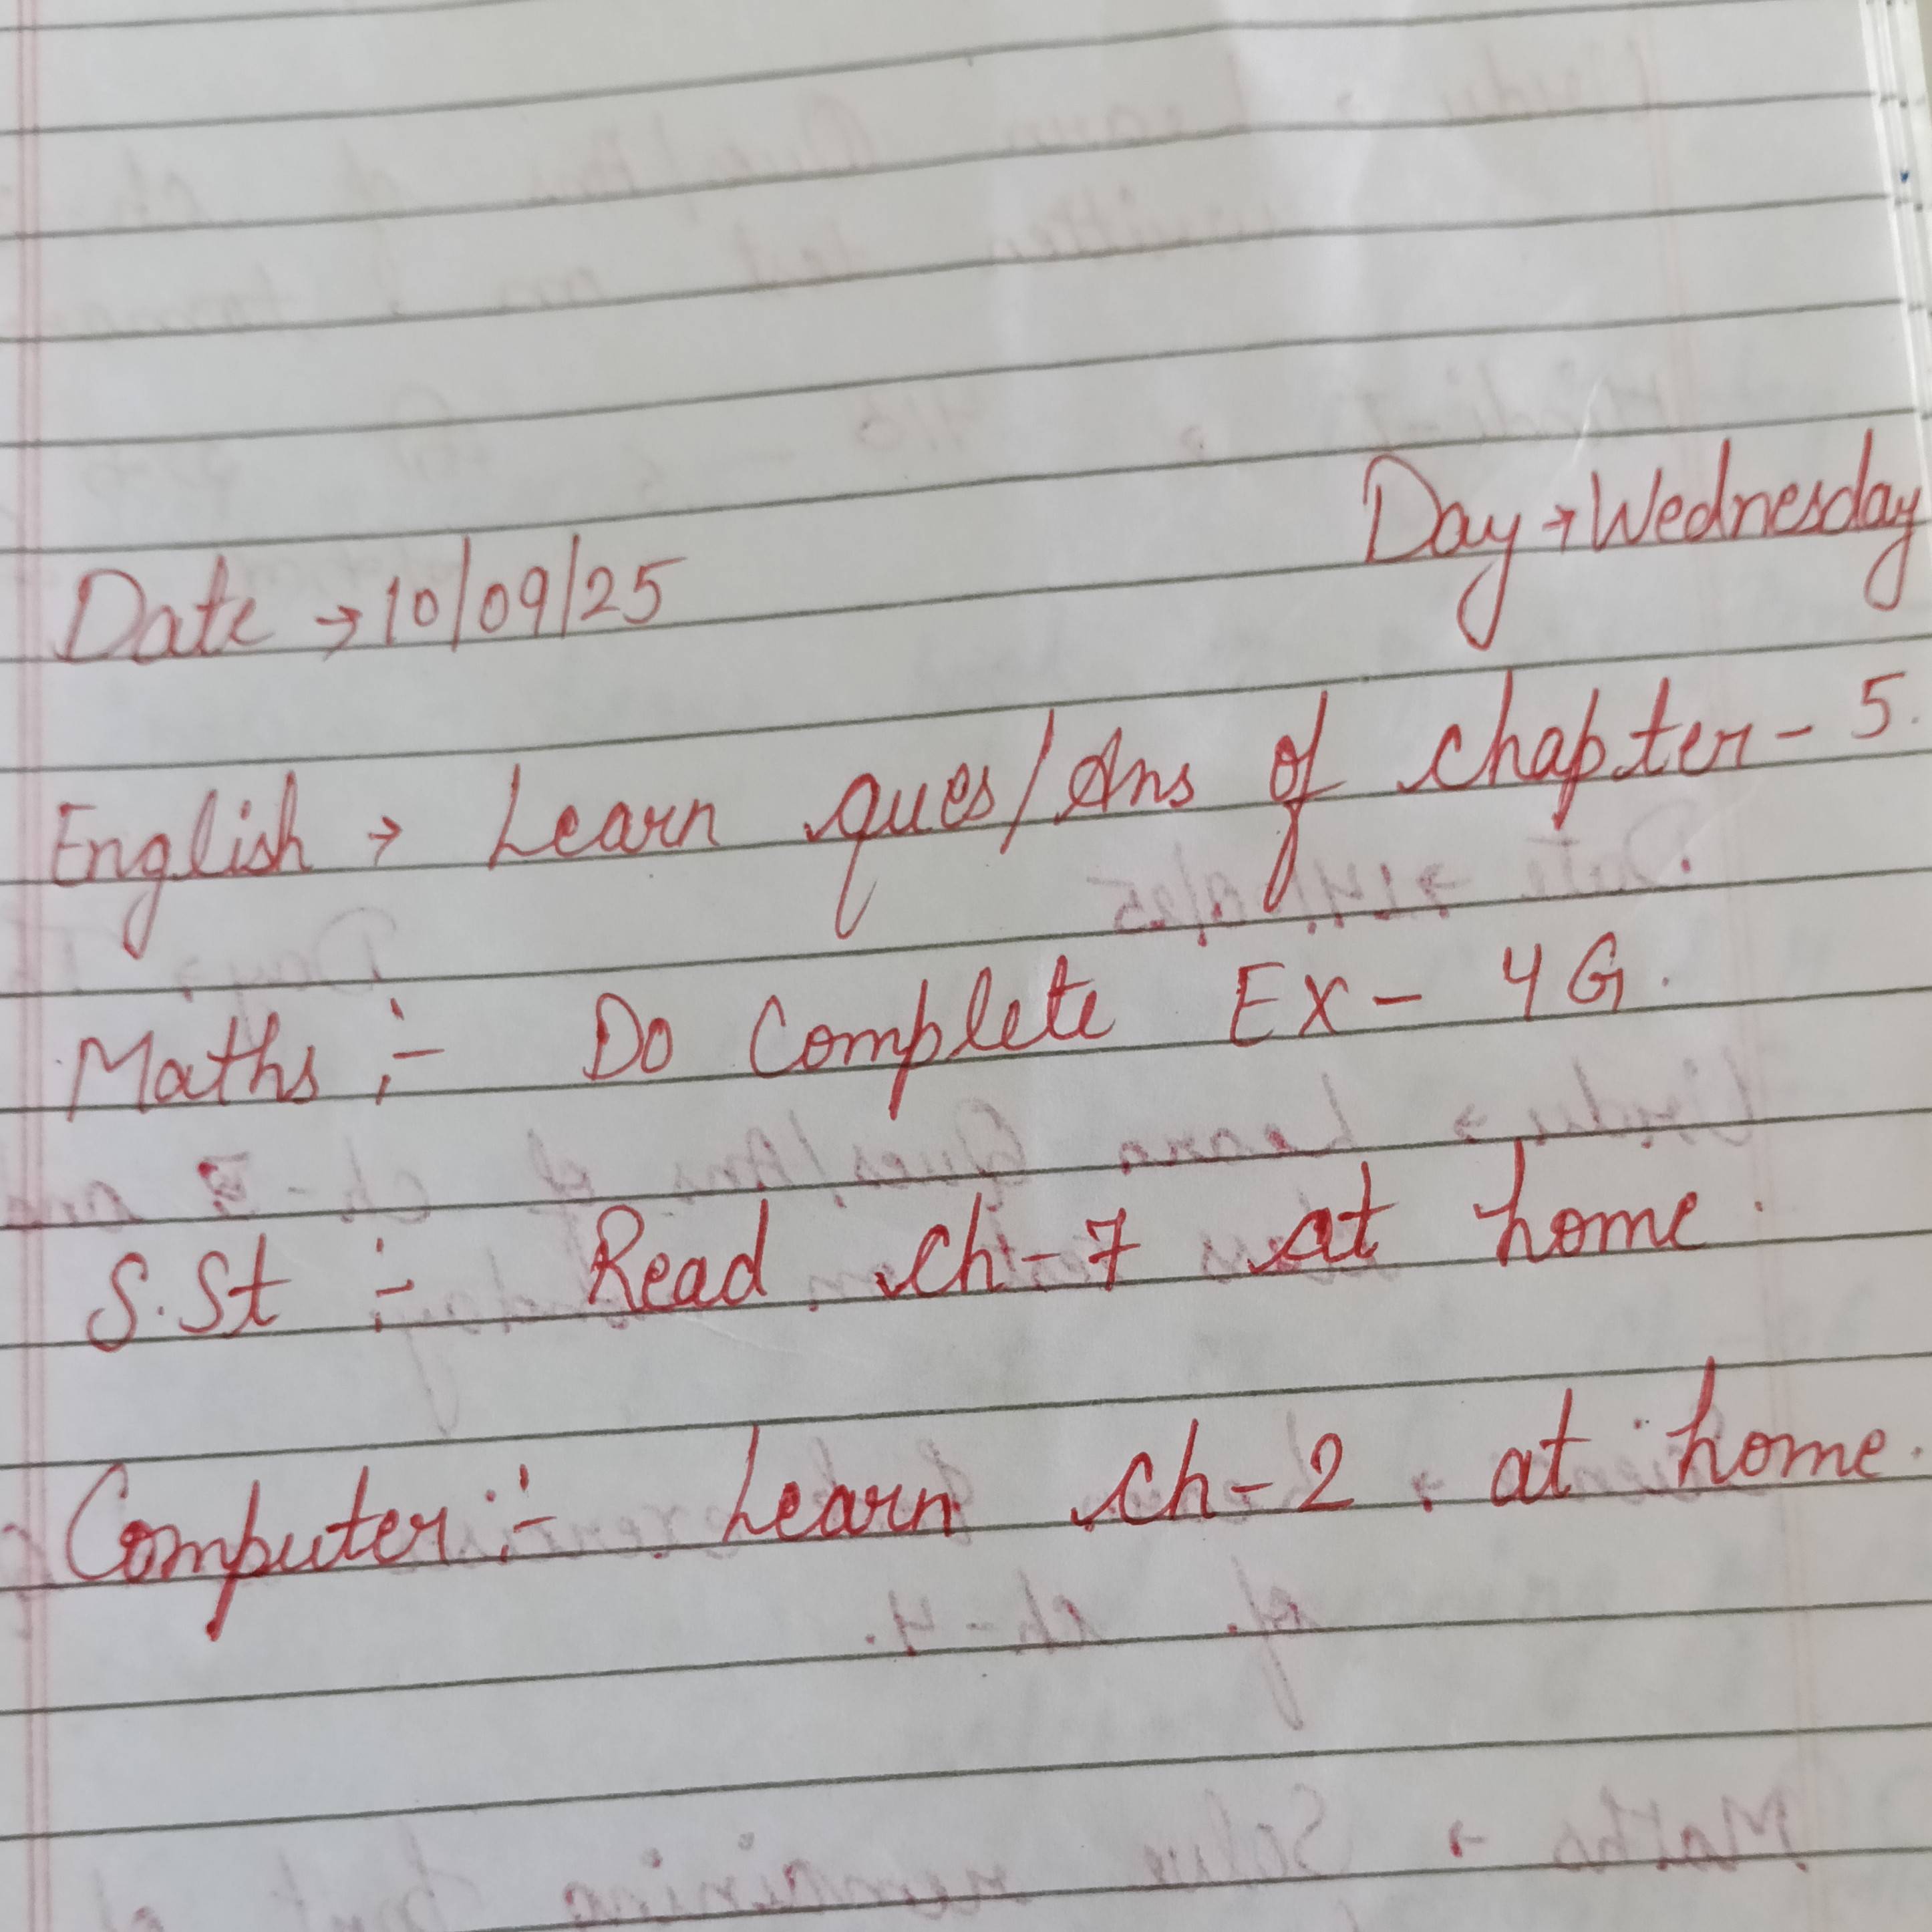 Day → Wednesday
Date → 10/09/25
English → Learn ques/Ans of chapter - 5.
Maths :- Do Complete Ex - 4G.
S.St :- Read ch-7 at home.
Computer :- Learn ch-2 at home.